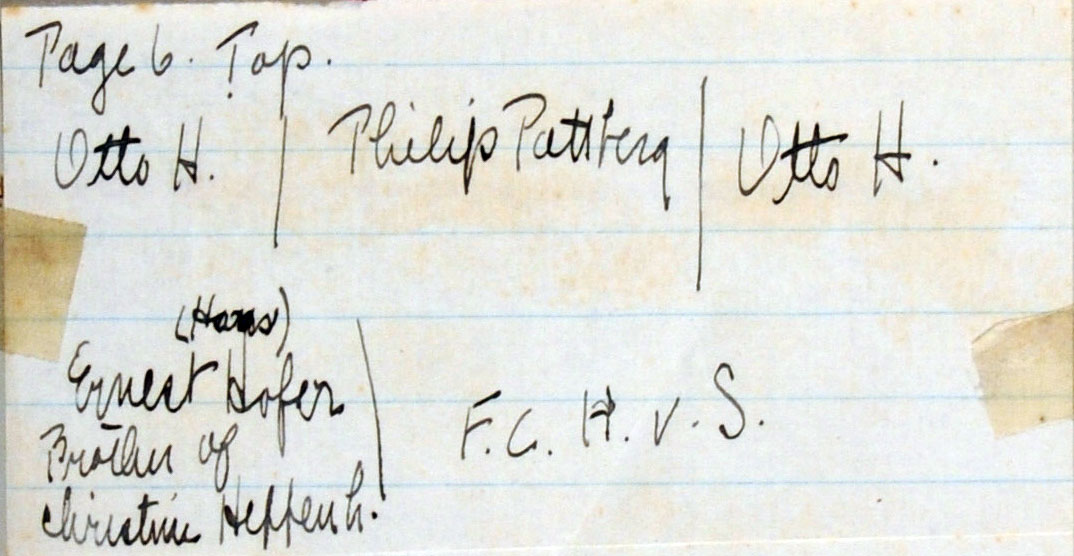 Page 6. Top.
Otto H. | Philip Pattberg | Otto H.
(Hans)
Ernest Hofer | F. C. H. v. S.
Brother of
Christine Heffenh.